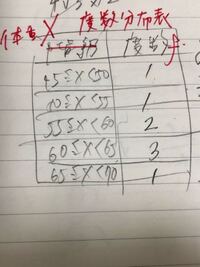 体重 X 度数分布表
度数 f
45≦X<50 1
50≦X<55 1
55≦X<60 2
60≦X<65 3
65≦X<70 1